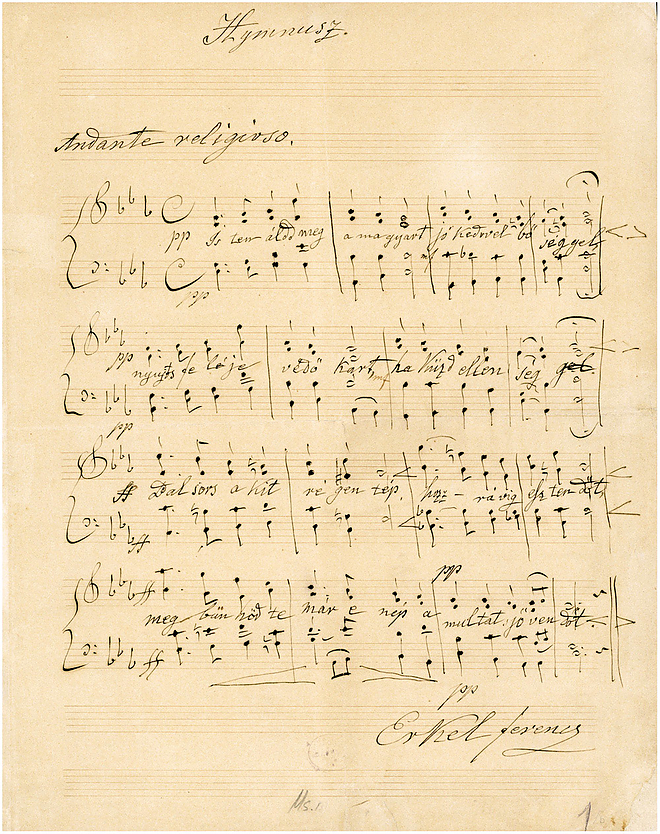 Hymnusz.
Andante religioso.
pp Is ten áldd meg a magyart jó kedvvel bő séggel
mf
pp
pp nyujts fe léje védő kart ha küzd ellen ség gel
mf
pp
ff Bal sors a kit ré gen tép, hoz – rá víg esz ten dőt,
ff
pp
ff meg bün hőd te már e nép a multat, jöven dőt
ff
pp
Erkel ferencz
Ms. 1
1